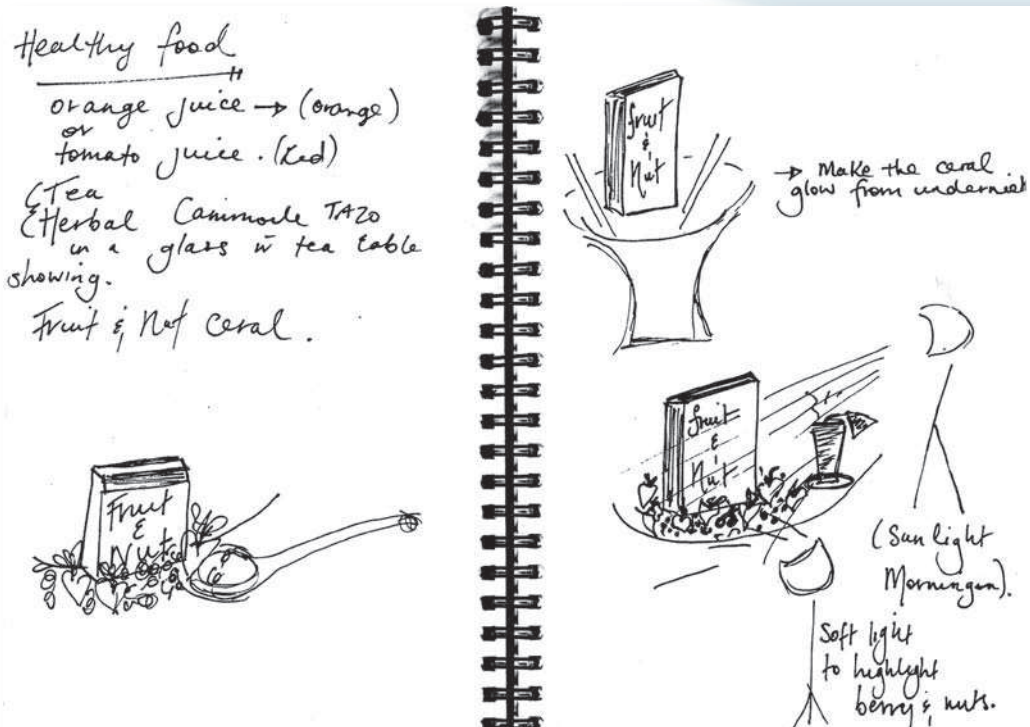 Healthy food
orange juice → (orange)
or
tomato juice. (Red)
Tea
Herbal Cammomile TAZO
in a glass in tea table
showing.
Fruit & Nut ceral.
Fruit
&
Nut
fruit
&
Nut
→ Make the ceral
glow from underniet
fruit
&
Nut
(Sun light
Morningun).
Soft light
to highlight
berry & nuts.